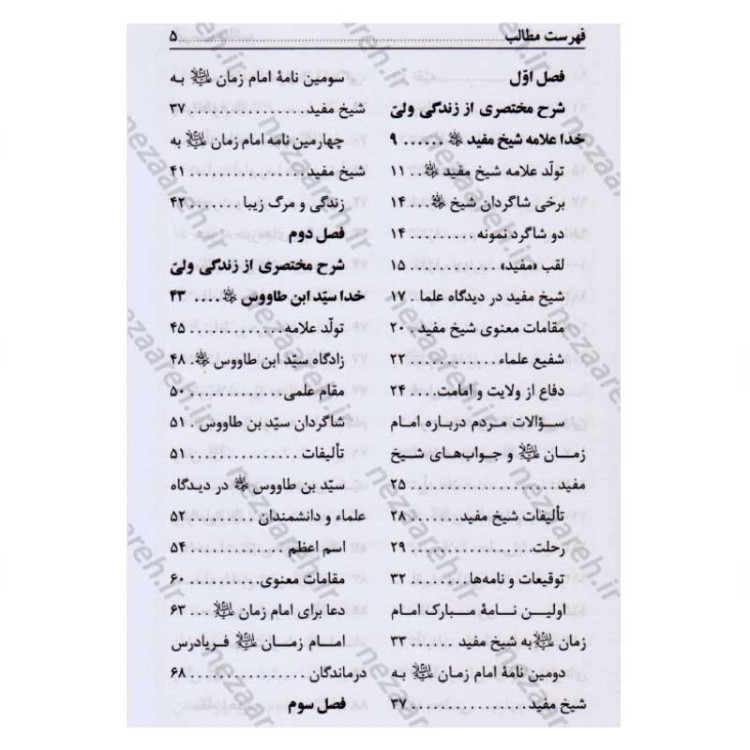 فهرست مطالب ۵
فصل اوّل
شرح مختصری از زندگی ولیّ
خدا علامه شیخ مفید ...... ۹
تولّد علامه شیخ مفید .. ۱۱
برخی شاگردان شیخ ... ۱۴
دو شاگرد نمونه .......... ۱۴
لقب «مفید» ............ ۱۵
شیخ مفید در دیدگاه علما . ۱۷
مقامات معنوی شیخ مفید . ۲۰
شفیع علماء .............. ۲۲
دفاع از ولایت و امامت .... ۲۴
سؤالات مردم درباره امام
زمان علیه‌السلام و جواب‌های شیخ
مفید ..................... ۲۵
تألیفات شیخ مفید ........ ۲۸
رحلت .................... ۲۹
توقیعات و نامه‌ها .......... ۳۲
اولین نامهٔ مبارک امام
زمان علیه‌السلام به شیخ مفید ...... ۳۳
دومین نامهٔ امام زمان علیه‌السلام به
شیخ مفید ................. ۳۷
سومین نامهٔ امام زمان علیه‌السلام به
شیخ مفید ................. ۳۷
چهارمین نامه امام زمان علیه‌السلام به
شیخ مفید ................. ۴۱
زندگی و مرگ زیبا ....... ۴۲
فصل دوم
شرح مختصری از زندگی ولیّ
خدا سیّد ابن طاووس .... ۴۳
تولّد علامه ............... ۴۵
زادگاه سیّد ابن طاووس . ۴۸
مقام علمی ............... ۵۰
شاگردان سیّد بن طاووس . ۵۱
تألیفات .................. ۵۱
سیّد بن طاووس در دیدگاه
علماء و دانشمندان ........ ۵۲
اسم اعظم ............... ۵۴
مقامات معنوی ........... ۶۰
دعا برای امام زمان علیه‌السلام ... ۶۳
امام زمان علیه‌السلام فریادرس
درماندگان ............... ۶۸
فصل سوم
nezaareh.ir